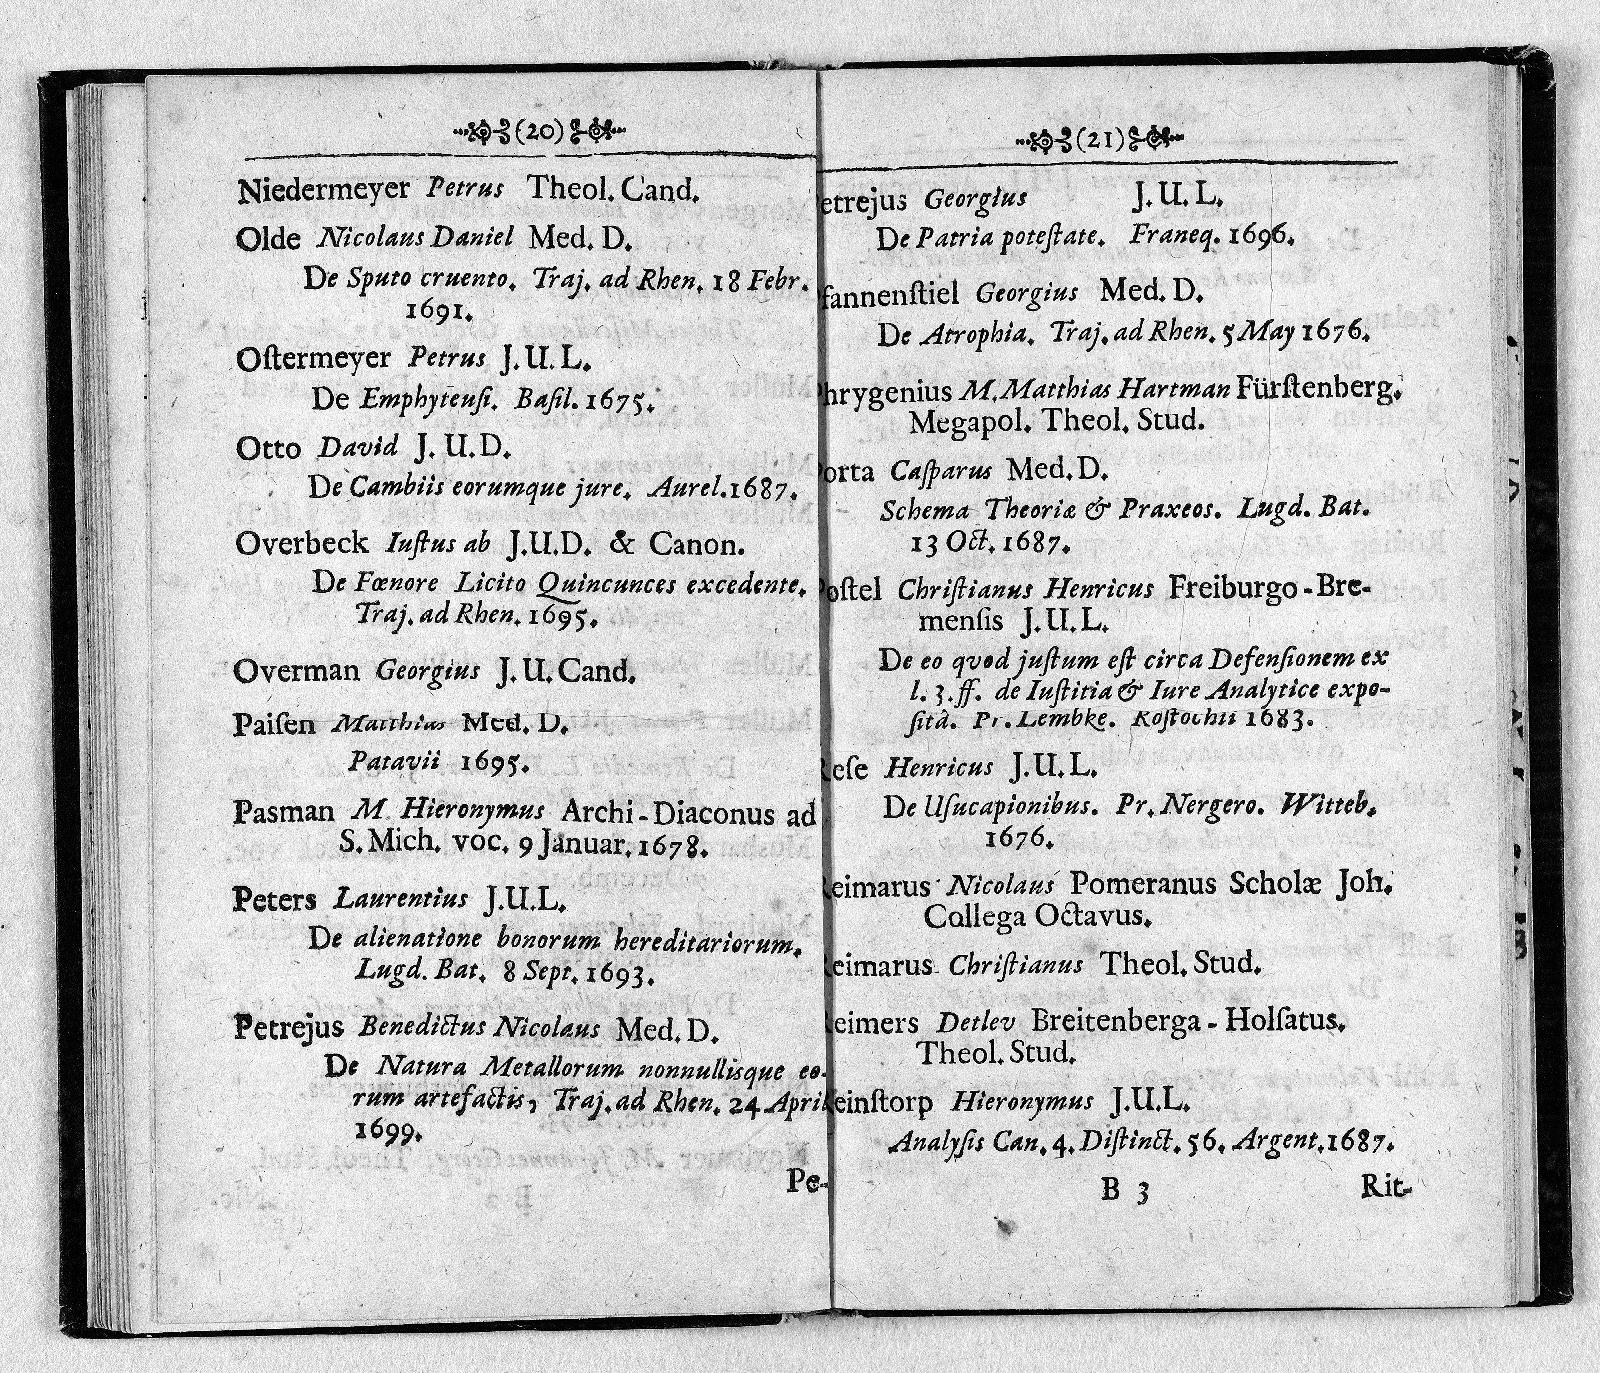 (20)
Niedermeyer Petrus Theol. Cand.
Olde Nicolaus Daniel Med. D.
De Sputo cruento. Traj. ad Rhen. 18 Febr.
1691.
Oſtermeyer Petrus J.U.L.
De Emphyteuſi. Baſil. 1675.
Otto David J.U.D.
De Cambiis eorumque jure. Aurel. 1687.
Overbeck Iuſtus ab J.U.D. & Canon.
De Fœnore Licito Quincunces excedente.
Traj. ad Rhen. 1695.
Overman Georgius J.U. Cand.
Paiſen Matthias Med. D.
Patavii 1695.
Pasman M Hieronymus Archi-Diaconus ad
S. Mich. voc. 9 Januar. 1678.
Peters Laurentius J.U.L.
De alienatione bonorum hereditariorum.
Lugd. Bat. 8 Sept. 1693.
Petrejus Benedictus Nicolaus Med. D.
De Natura Metallorum nonnullisque eo-
rum artefactis, Traj. ad Rhen. 24 April
1699.
Pe-
(21)
etrejus Georgius J.U.L.
De Patria poteſtate. Franeq. 1696.
fannenſtiel Georgius Med. D.
De Atrophia. Traj. ad Rhen. 5 May 1676.
hrygenius M. Matthias Hartman Fürſtenberg.
Megapol. Theol. Stud.
orta Caſparus Med. D.
Schema Theoriæ & Praxeos. Lugd. Bat.
13 Oct. 1687.
oſtel Chriſtianus Henricus Freiburgo-Bre-
menſis J.U.L.
De eo qvod juſtum eſt circa Defenſionem ex
l. 3. ff. de Iuſtitia & Iure Analytice expo-
ſitâ. Pr. Lembke. Roſtochii 1683.
eſe Henricus J.U.L.
De Uſucapionibus. Pr. Nergero. Witteb.
1676.
eimarus Nicolaus Pomeranus Scholæ Joh.
Collega Octavus.
eimarus Chriſtianus Theol. Stud.
eimers Detlev Breitenberga-Holſatus.
Theol. Stud.
einſtorp Hieronymus J.U.L.
Analyſis Can. 4. Diſtinct. 56. Argent. 1687.
B 3 Rit-